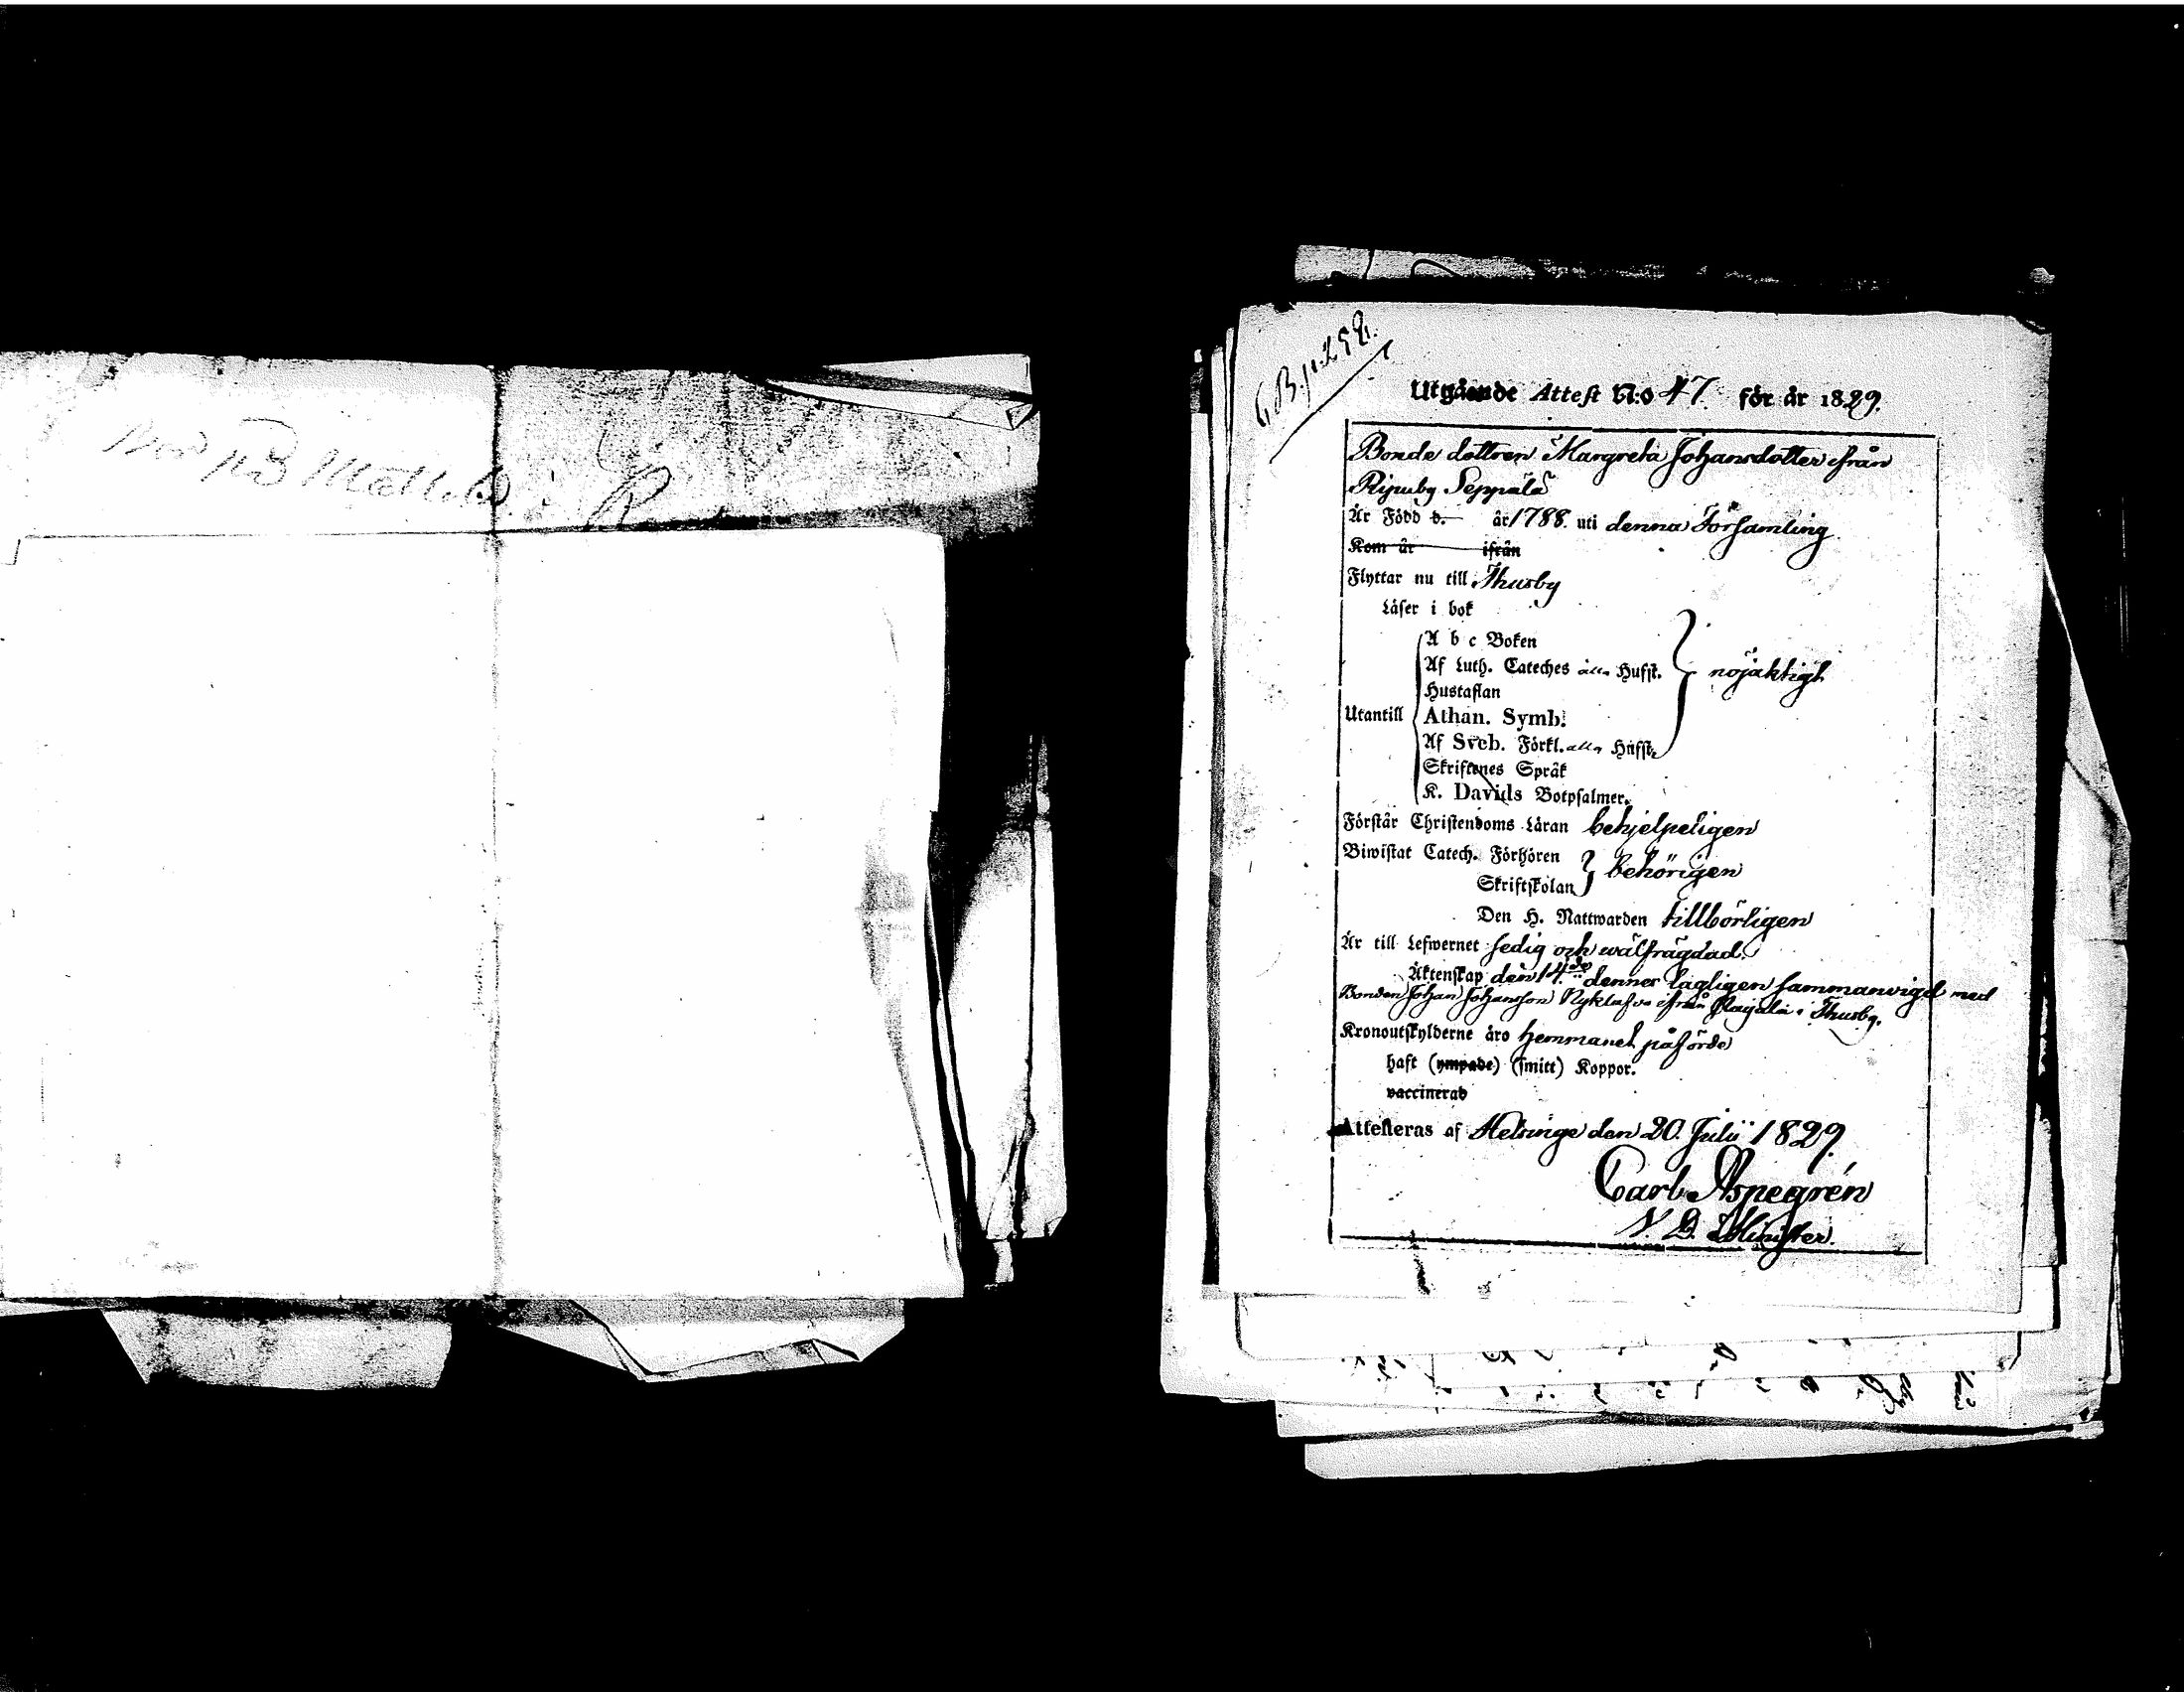 N:o 3 Mält
Utgående Attest N:o 47. för år 1829.
Bonde dottren Margreta Johansdotter ifrån
Ripuby Seppälä
Är Född d. år 1788. uti denna Församling
Kom år ifrån
Flyttar nu till Thusby
Läser i bok
A b c Boken
Af Luth. Cateches alla Hufst.
nöjaktigt
Hustaflan
Utantill
Athan. Symb.
Af Sveb. Förkl. alla Hufst.
Skriftenes Språk
K. Davids Botpsalmer.
Förstår Christendoms Läran behjelpeligen
Biwistat Catech. Förhören
behörigen
Skriftskolan
Den H. Nattwarden tillbörligen
Är till Lefwernet sedig och wälfrägdad.
Äktenskap den 14de dennes lagligen sammanvigd med
Bonden Johan Johansson ifrån i Thusby.
Kronoutskylderne äro hemmanet påförde
haft (ympade) (smitt) Koppor.
vaccinerad
Attesteras af Helsinge den 20. Julii 1829.
Carl Aspegrén
V. D. Minister.